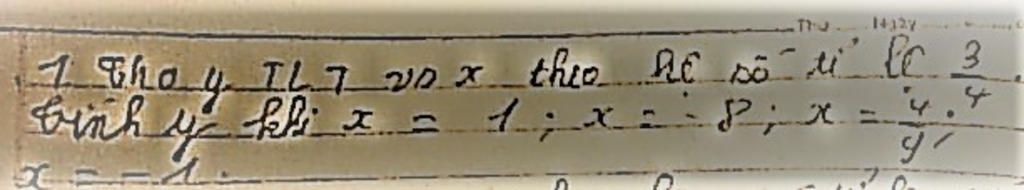 1 Cho y TLT vs x theo hệ số tỉ lệ 3/4.
Tính y khi x = 1; x = -8; x = 4/9;
x = -1.